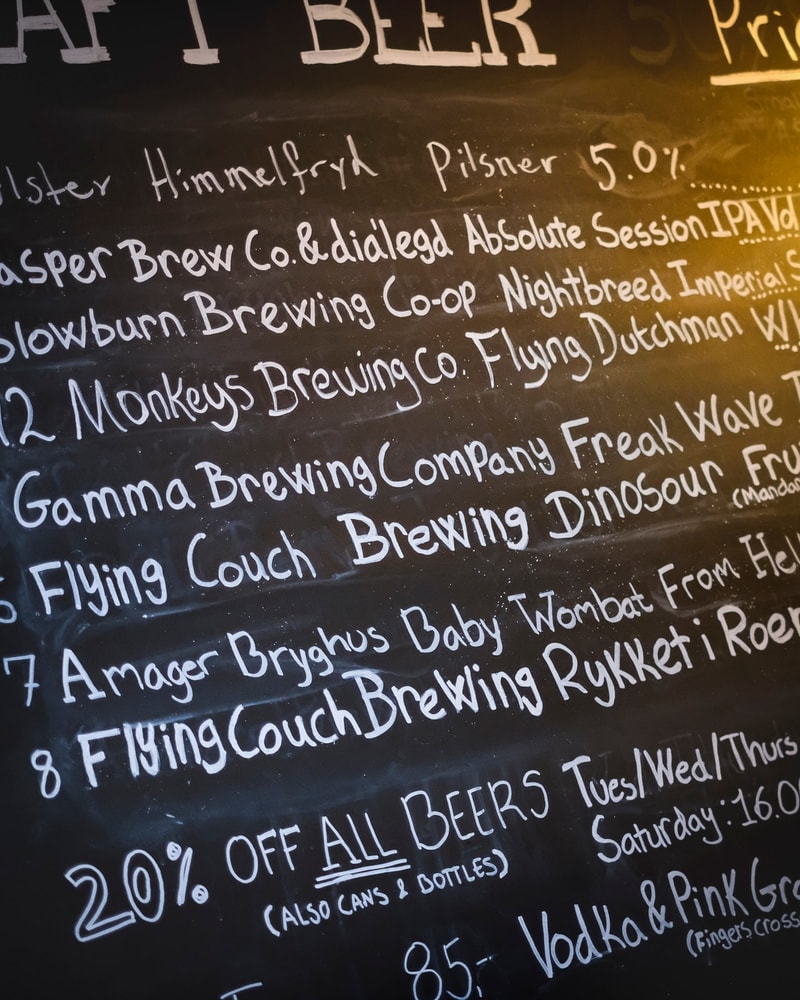 AFT BEER Pri
lster Himmelfryd Pilsner 5.0%
asper Brew Co. & dialegd Absolute Session IPA Vol
lowburn Brewing Co-op Nightbreed Imperial S
12 Monkeys Brewing Co. Flying Dutchman WI
Gamma Brewing Company Freak Wave T
6 Flying Couch Brewing Dinosour Fru
(Mandar
7 Amager Bryghus Baby Wombat From Hell
8 Flying Couch Brewing Rykket i Roer
20% OFF ALL BEERS Tues/Wed/Thurs
(ALSO CANS & BOTTLES) Saturday: 16.0
85,- Vodka & Pink Gra
(Fingers Cross